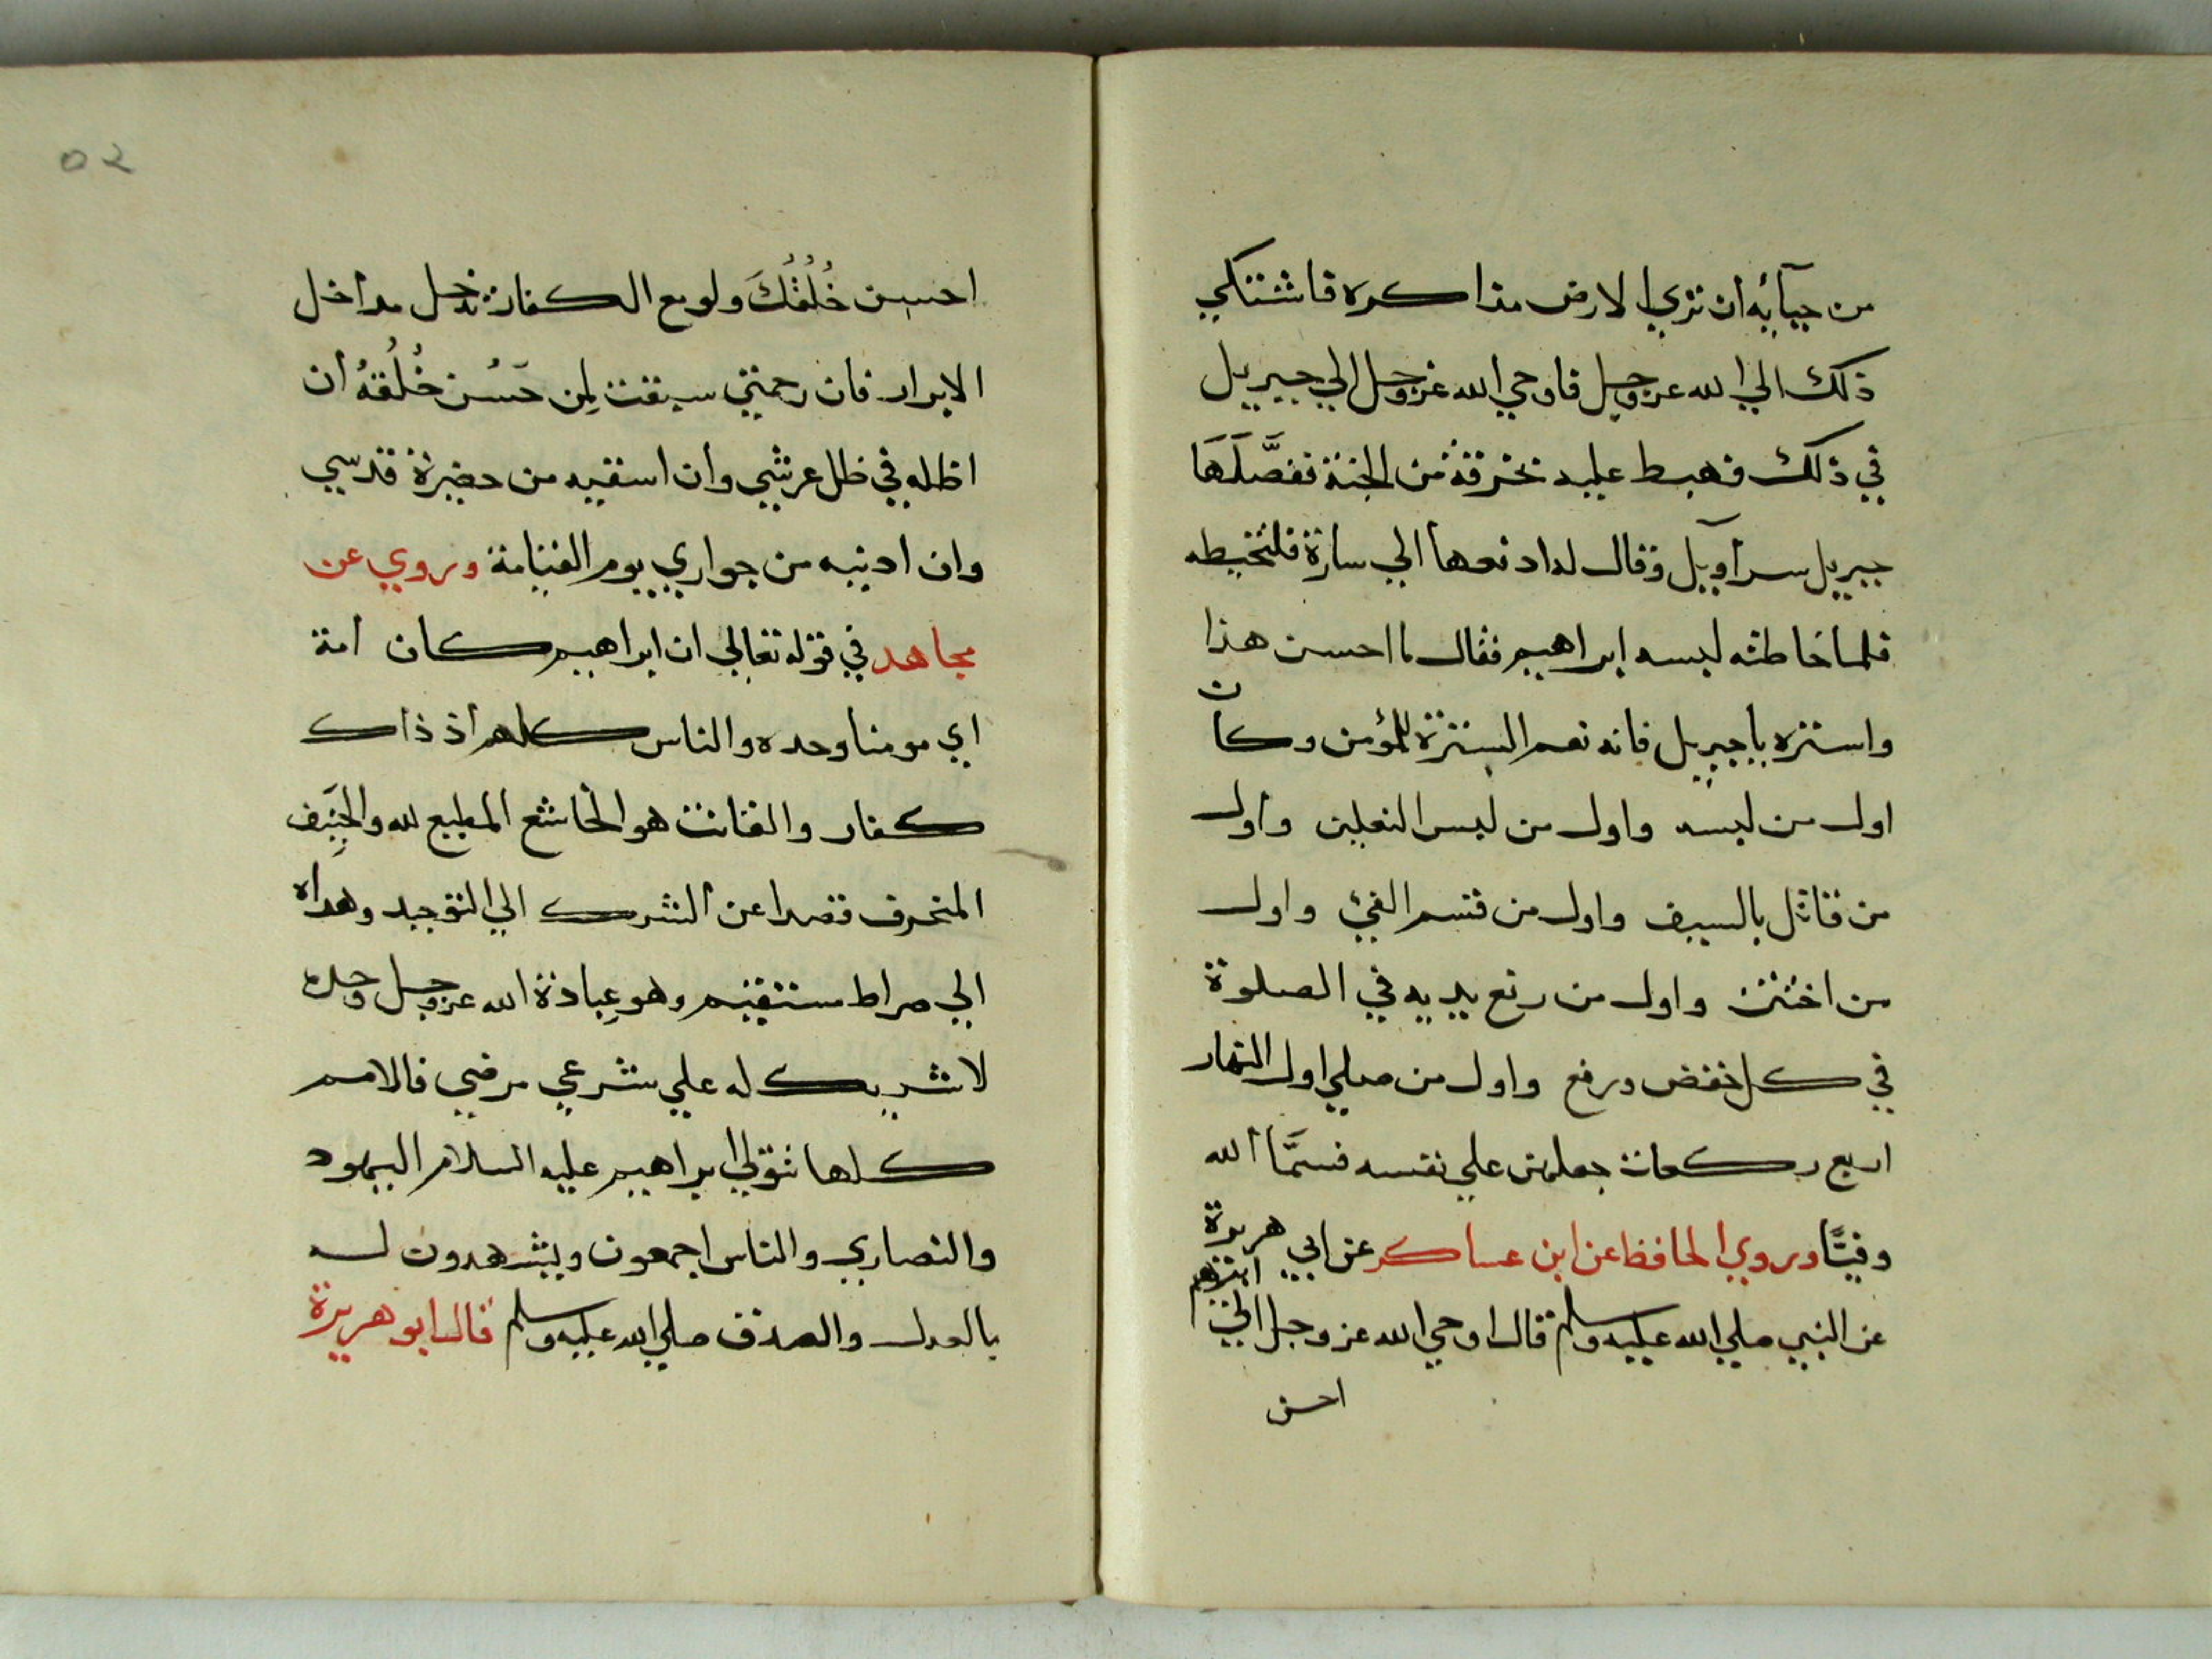 من حيآئه ان تري الارض مذاكره فاشتكي
ذلك الي الله عز وجل فاوحي الله عز وجل الي جبريل
في ذلك فهبط عليه بخرقة من الجنة ففصَّلَهَا
جبريل سرآويل وقال له ادفعها الي سارة فلتخيطه
فلما خاطته لبسه ابراهيم فقال ما احسن هذا
واستره يا جبريل فانه نعم السترة للمؤمن وكان
اول من لبسه واول من لبس النعلين واول
من قاتل بالسيف واول من قسم الفيئ واول
من اختتن واول من رفع يديه في الصلوة
في كل خفض ورفع واول من صلي اول النهار
اربع ركعات جعلهن علي نفسه فسمَّاه الله
وفيًّا وروي الحافظ عن ابن عساكر عن ابي هريرة
عن النبي صلي الله عليه وسلم قال اوحي الله عز وجل الي ابراهيم
احسن
٥٢
احسن خُلُقُكَ ولو مع الكفار تدخل مداخل
الابرار فان رحمتي سبقت لِمن حَسُن خُلُقهُ ان
اظله في ظل عرشي وان اسقيه من حضيرة قدسي
وان ادنيه من جواري يوم القيامة وروي عن
مجاهد في قوله تعالي ان ابراهيم كان امة
اي مومنا وحده والناس كلهم اذ ذاك
كفار والقانت هو الخاشع المطيع لله والحنَيِف
المنحرف قصدا عن الشرك الي التوحيد وهداه
الي صراط مستقيم وهو عِبادة الله عز وجل وحده
لا شريك له علي شرعي مرضي فالامم
كلها تتولي ابراهيم عليه السلام اليهود
والنصاري والناس اجمعون ويشهدون له
بالعدل والصدق صلي الله عليه وسلم قال ابو هريرة